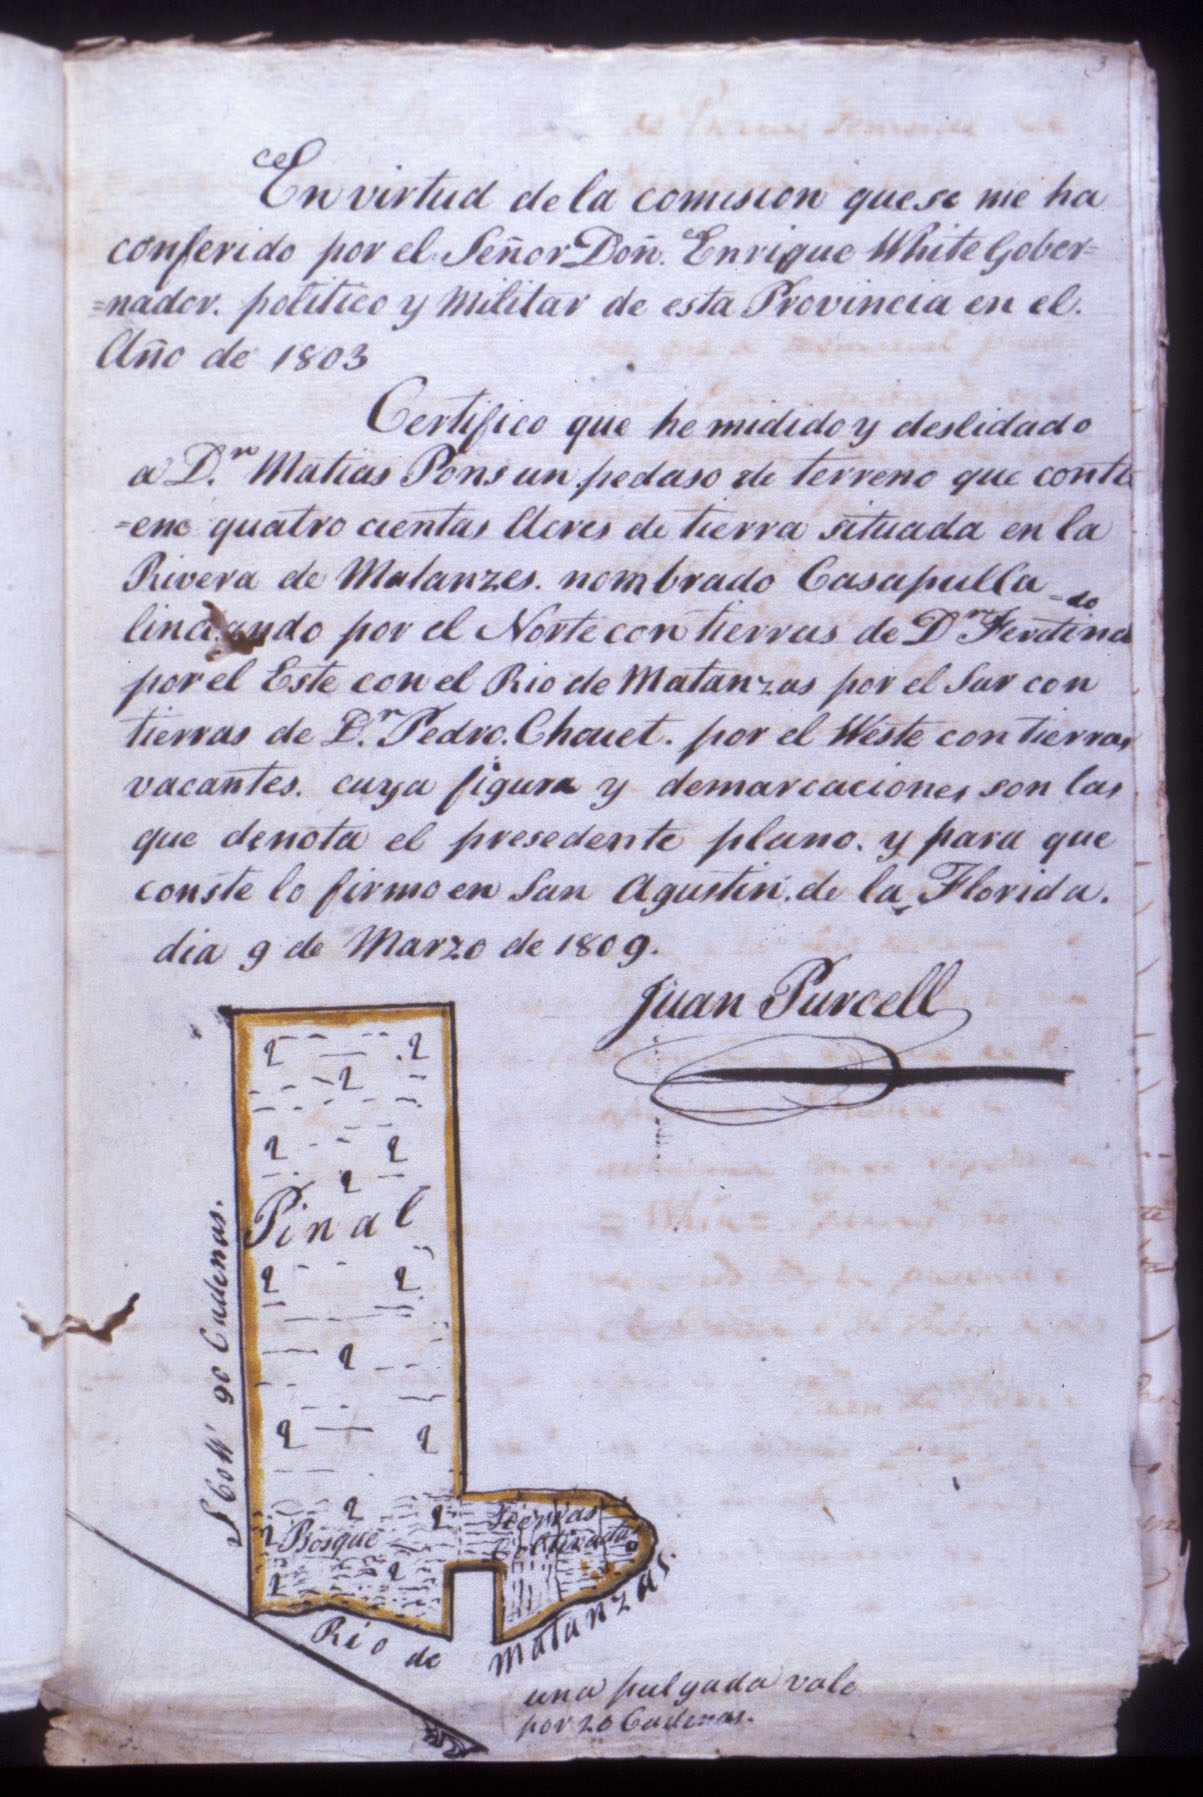 En virtud de la comision que se me ha
conferido por el Señor Doñ. Enrique White Gober=
=nador. politico y Militar de esta Provincia en el.
Año de 1803
Certifico que he midido y deslidado
a D.n Matias Pons un pedaso de terreno que conti
=ene quatro cientas Acres de tierra situada en la
Rivera de Matanzes. nombrado Casapulla
lindando por el Norte con tierras de D.n Ferdina=do
por el Este con el Rio de Matanzas por el Sur con
tierras de D.n Pedro. Chouet. por el Weste con tierras
vacantes. cuya figura y demarcaciones son las
que denota el presedente plano. y para que
conste lo firmo en San Agustin. de la Florida.
dia 9 de Marzo de 1809.
Juan Purcell
Pinal
90 Cadenas.
Bosque
Tierras
Coltivadas
Rio de Matanzas.
una pulgada vale
por 20 Cadenas.